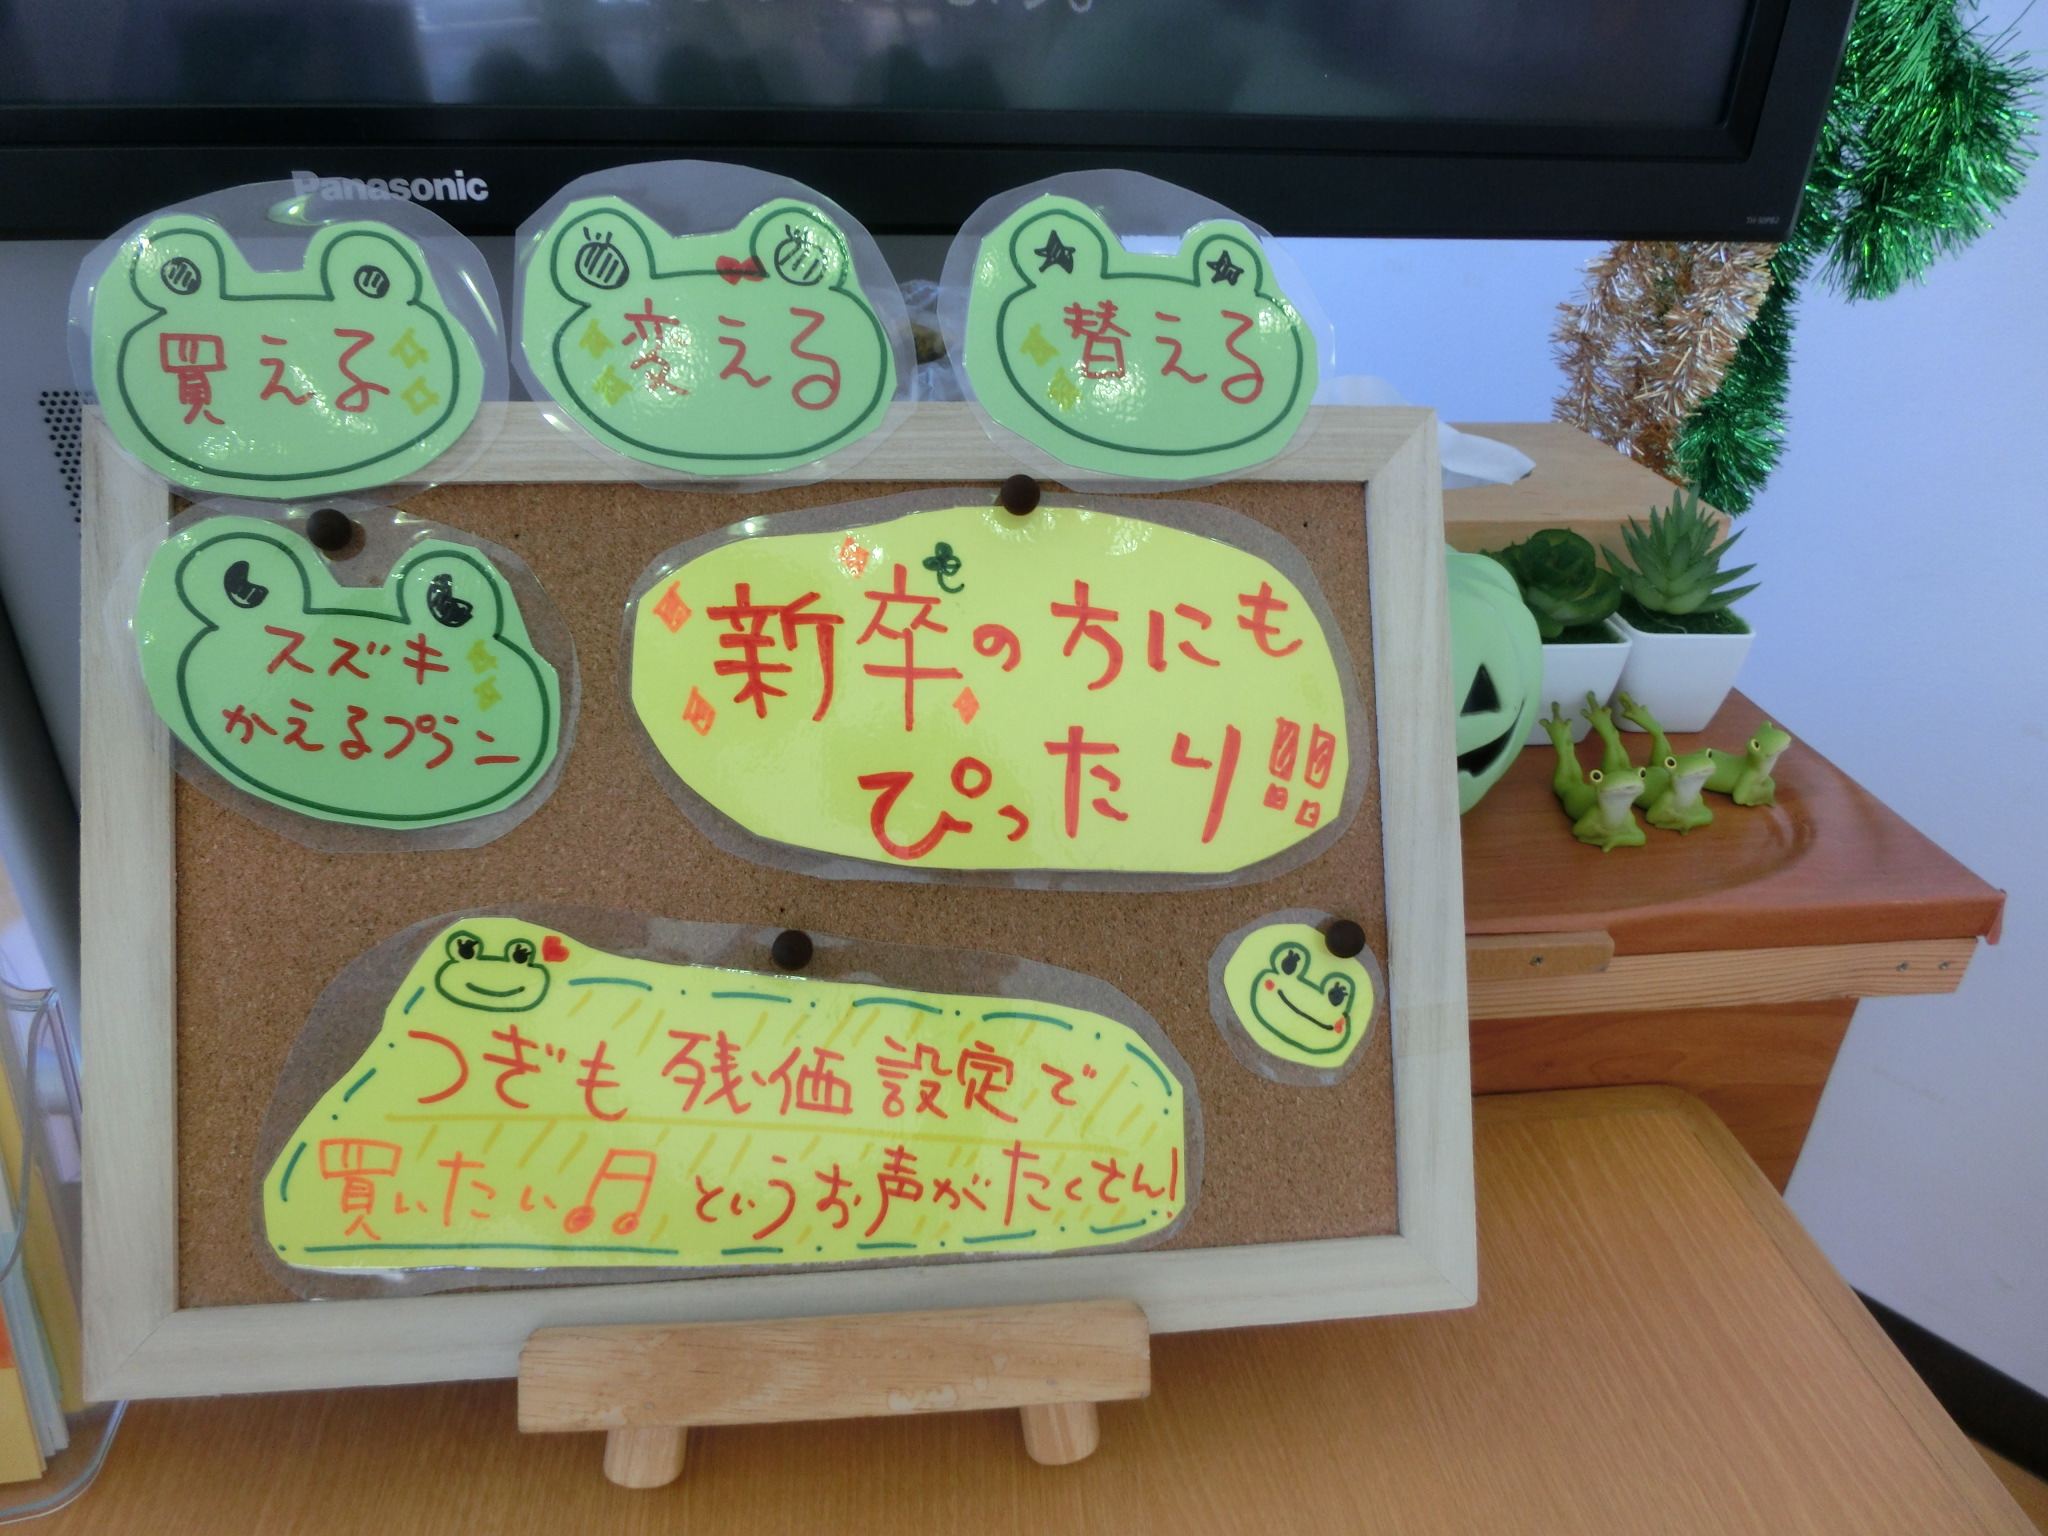 Panasonic
買える
変える
替える
スズキ
かえるプラン
新卒の方にも
ぴったり!!
つぎも残価設定で
買いたい♫というお声がたくさん!